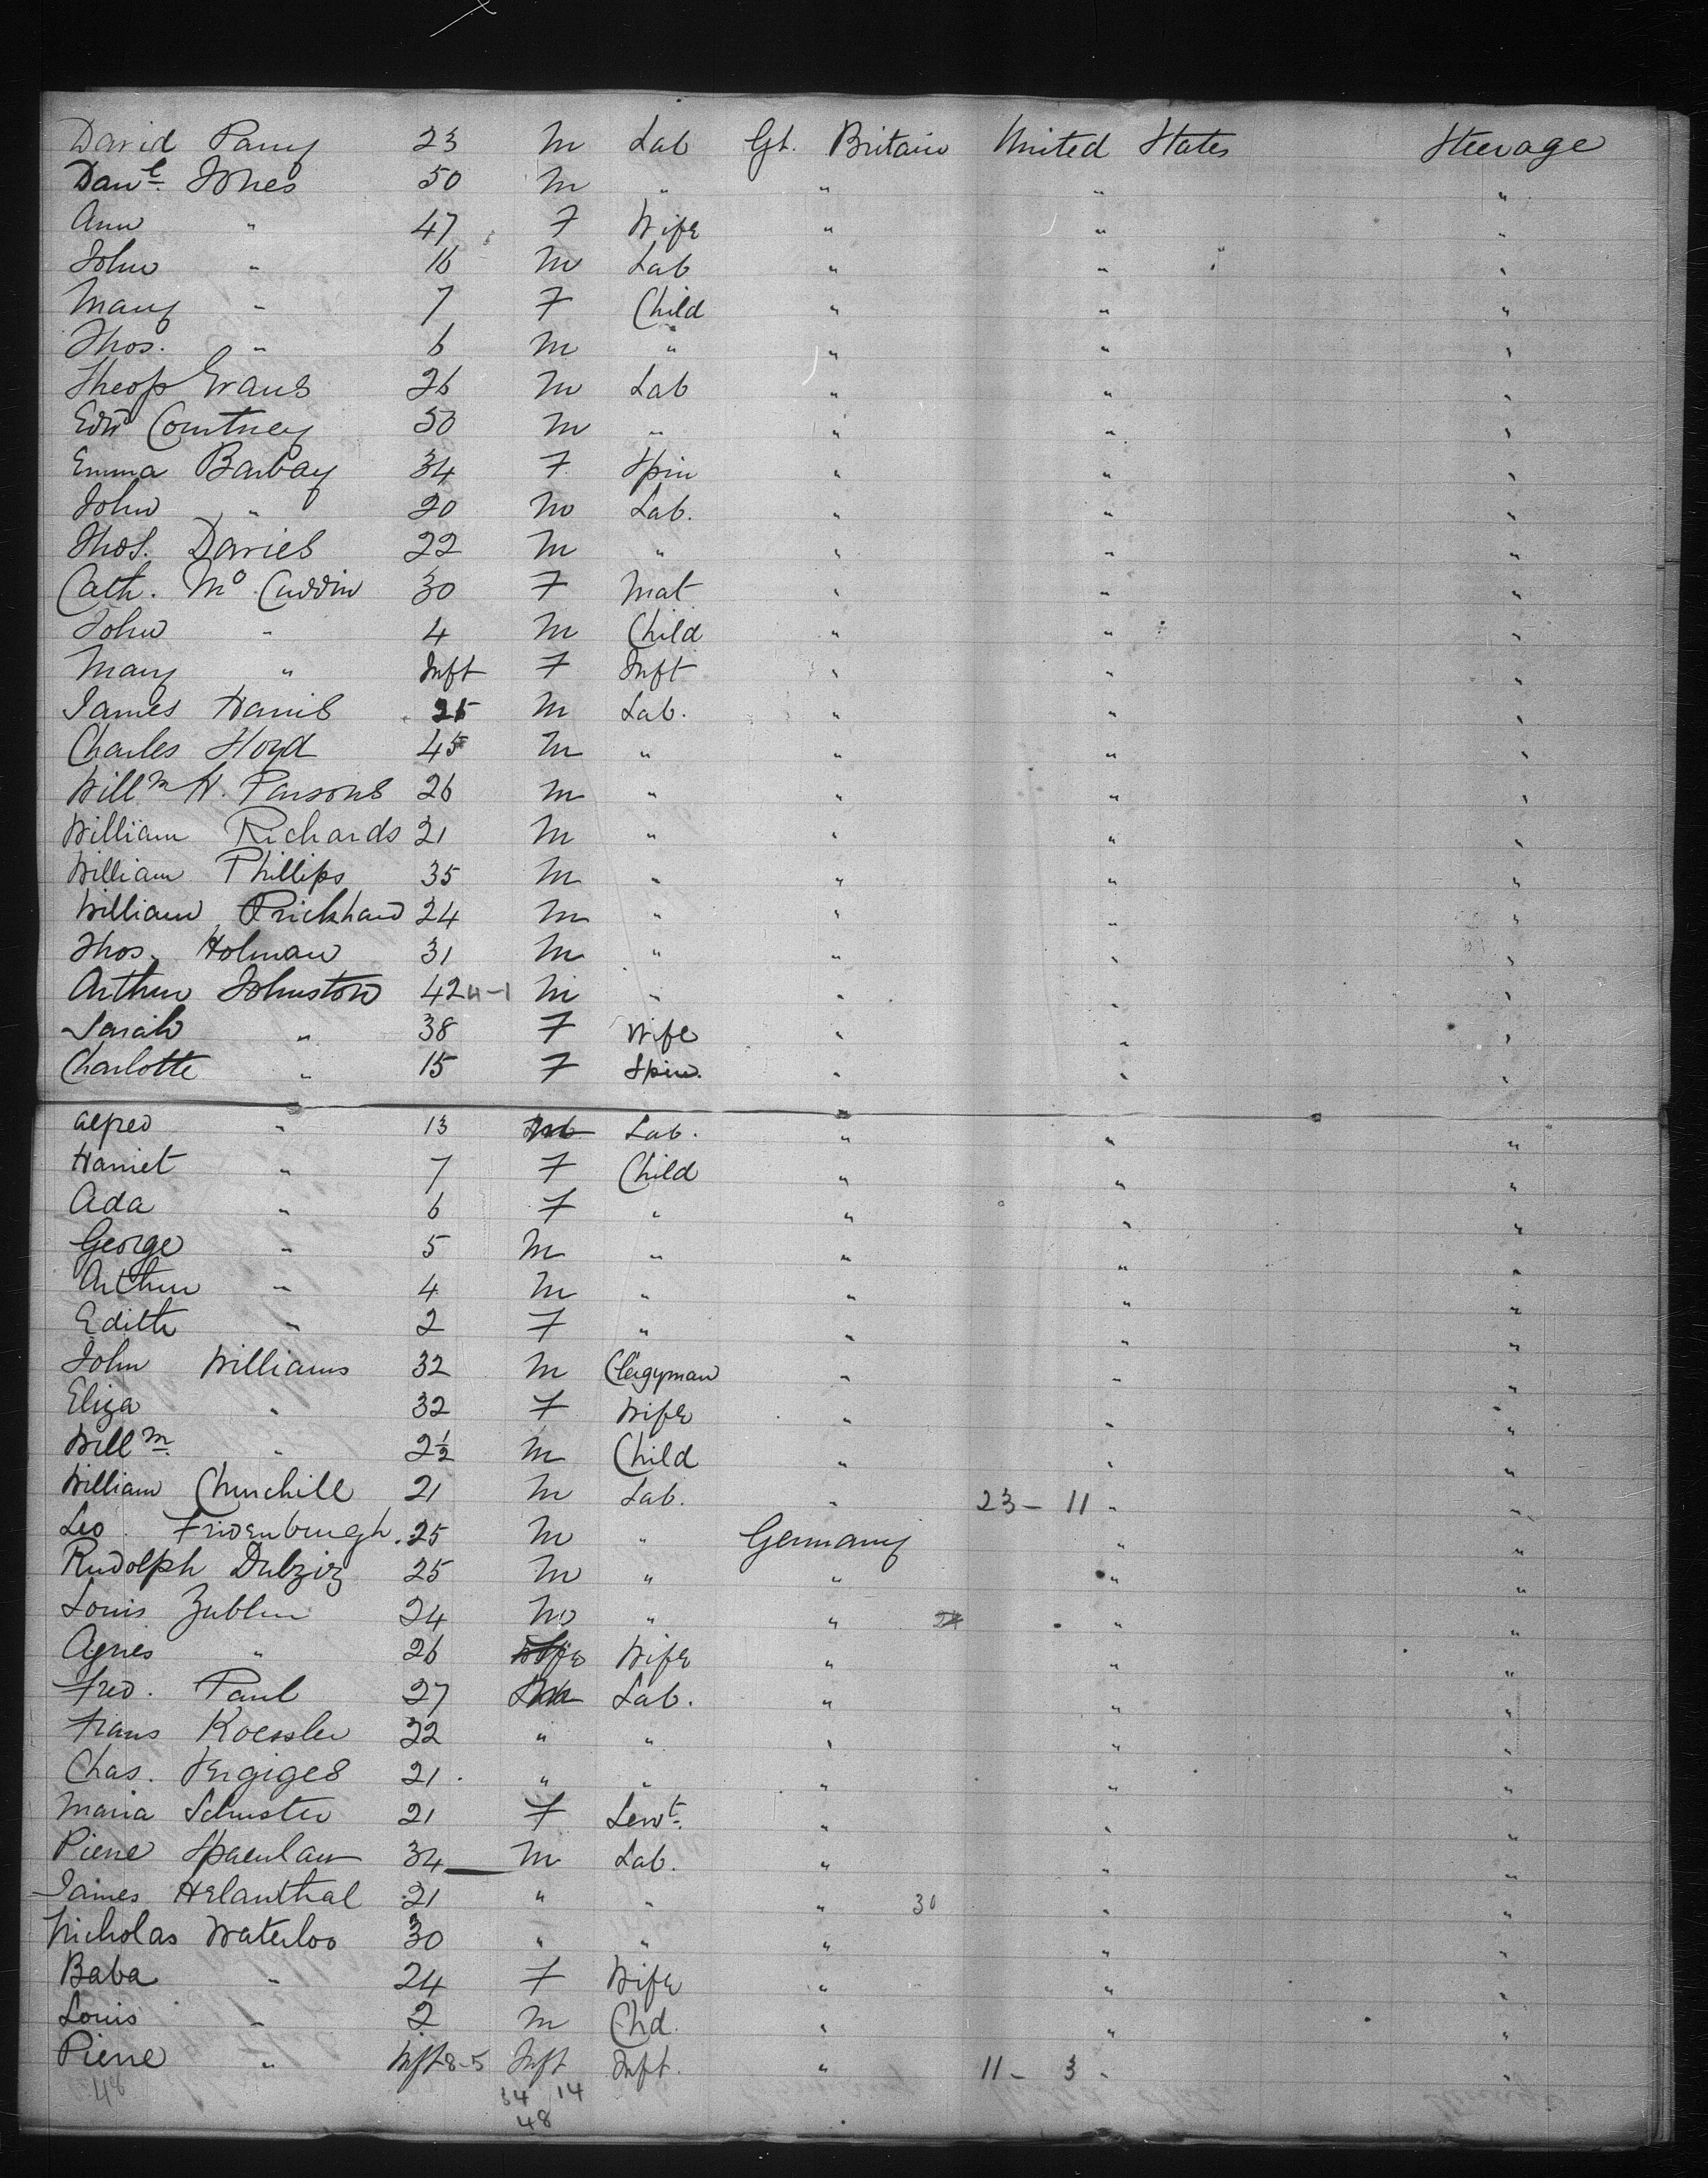 David Parry 23 M Lab Gt. Britain United States Steerage
Danl. Jones 50 M " " " "
Ann " 47 F Wife " " "
John " 16 M Lab " " "
Mary " 7 F Child " " "
Thos. " 6 M " " " "
Theop Evans 26 M Lab " " "
Edwd Courtney 50 M " " " "
Emma Barbay 34 F Spin " " "
John " 20 M Lab. " " "
Thos. Davies 22 M " " " "
Cath. Mc Cuddin 30 F Mat " " "
John " 4 M Child " " "
Mary " Inft F Inft " " "
James Harris 25 M Lab. " " "
Charles Lloyd 45 M " " " "
Willm H. Parsons 26 M " " " "
William Richards 21 M " " " "
William Phillips 35 M " " " "
William Prickhard 24 M " " " "
Thos. Holman 31 M " " " "
Arthur Johnston 42 11-1 M " " " "
Sarah " 38 F Wife " " "
Charlotte " 15 F Spin. " " "
Alfred " 13 Lab. " " "
Harriet " 7 F Child " " "
Ada " 6 F " " " "
George " 5 M " " " "
Arthur " 4 M " " " "
Edith " 2 F " " " "
John Williams 32 M Clergyman " " "
Eliza " 32 F Wife " " "
Willm. " 2½ M Child " " "
William Churchill 21 M Lab. " 23-11 " "
Leo. Fridenburgh. 25 M " Germany " "
Rudolph Dulziz 25 M " " " "
Louis Zublin 24 M " " 24 " "
Agnes " 26 Wife " " "
Fred. Paul 27 Lab. " " "
Frans Koessler 22 " " " " "
Chas. 21 " " " " "
Maria Schuster 21 F Servt. " " "
Pierre 34 M Lab. " " "
James Helanthal 21 " " " 30 " "
Nicholas Waterloo 30 " " " " "
Baba " 24 F Wife " " "
Louis " 2 M Chd. " " "
Pierre " Inft 8-5 Inft Inft. " 11-3 " "
48 34 14
48